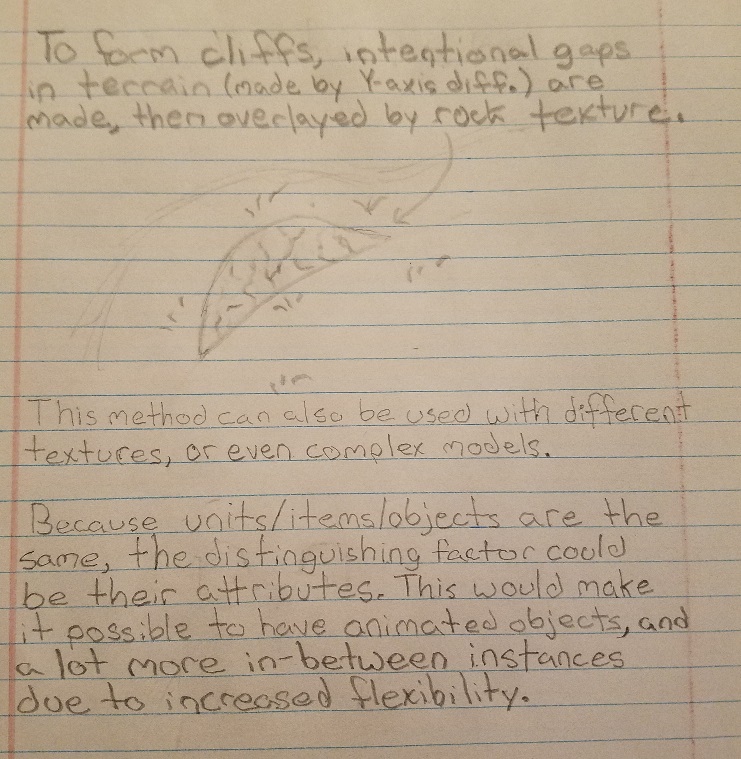 To form cliffs, intentional gaps
in terrain (made by Y-axis diff.) are
made, then overlayed by rock texture.
This method can also be used with different
textures, or even complex models.
Because units/items/objects are the
same, the distinguishing factor could
be their attributes. This would make
it possible to have animated objects, and
a lot more in-between instances
due to increased flexibility.